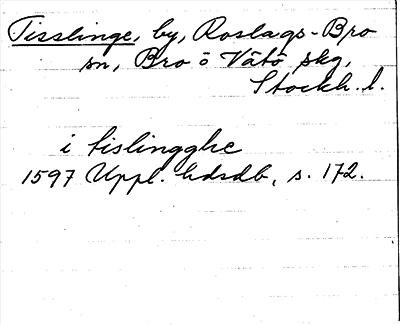 Tisslinge, by, Roslags-Bro
sn, Bro o Vätö skg,
Stockh. l.
i tislingghe
1597 Uppl. hdsdb, s. 172.